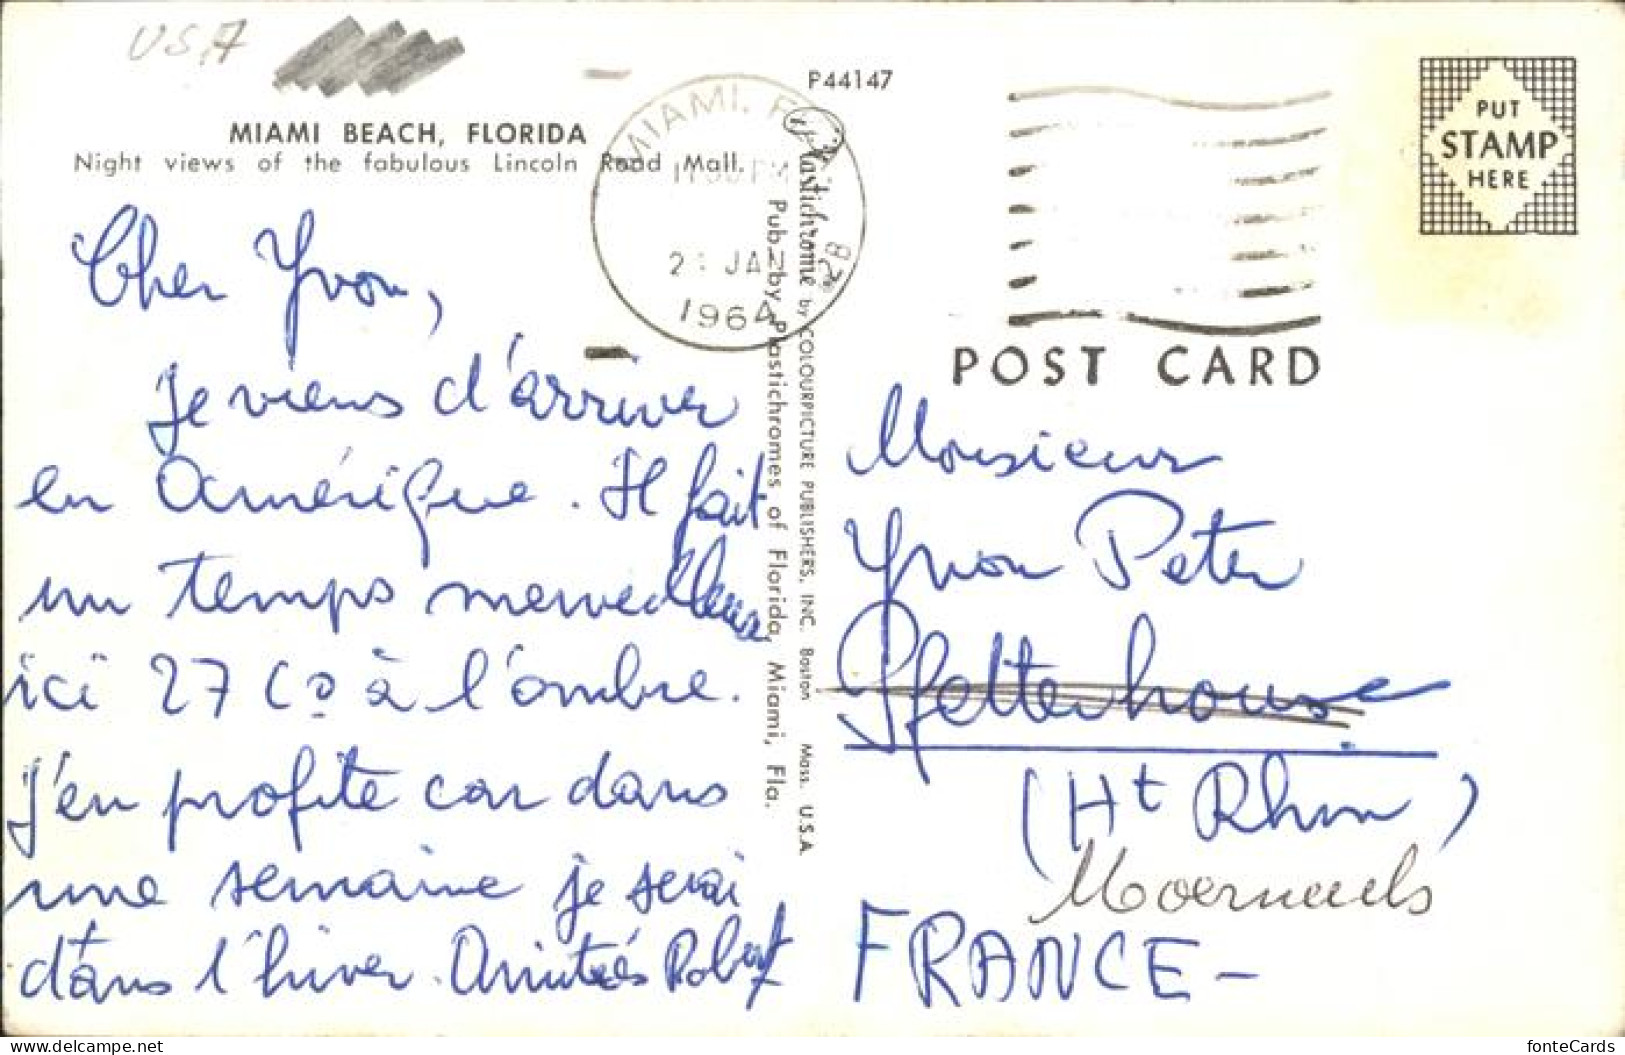 USA
MIAMI BEACH, FLORIDA
Night views of the fabulous Lincoln Road Mall.
P44147
MIAMI, FLA.
PM
JAN
1964
2B
Plastichrome by COLOURPICTURE PUBLISHERS, INC. Boston Mass. U.S.A.
Pub. by Plastichromes of Florida, Miami, Fla.
PUT
STAMP
HERE
POST CARD
Cher Yvon,
Je viens d'arriver
en Amérique. Il fait
un temps merveilleux
ici 27 C° à l'ombre.
J'en profite car dans
une semaine je serai
dans l'hiver. Amitiés Robert
Monsieur
Yvon Peter
Pfetterhouse
(Ht Rhin)
FRANCE -
fonteCards
www.delcampe.net